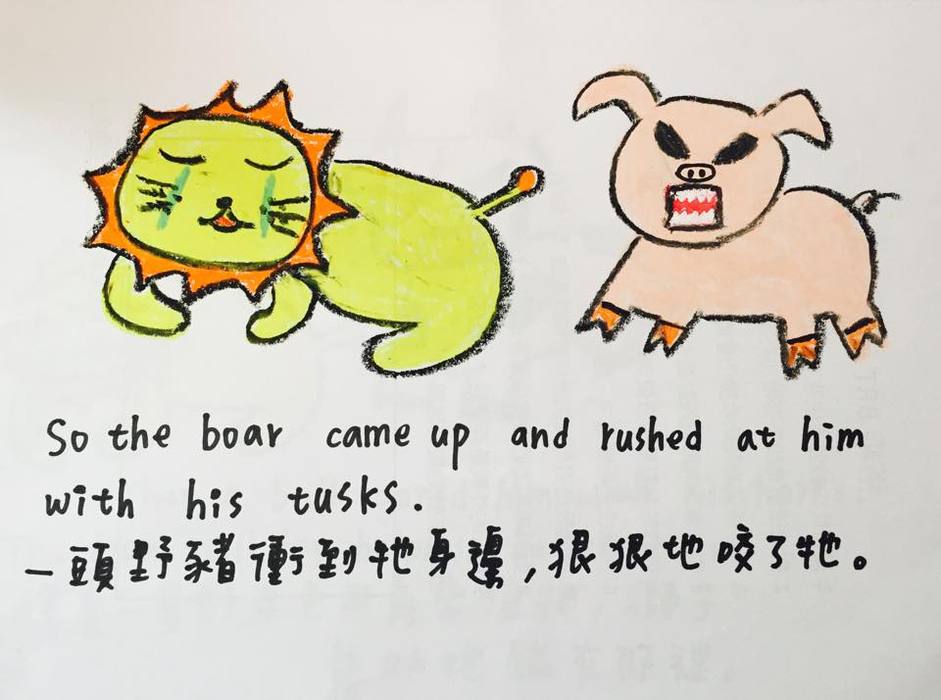 So the boar came up and rushed at him
with his tusks.
一頭野豬衝到牠身邊,狠狠地咬了牠。